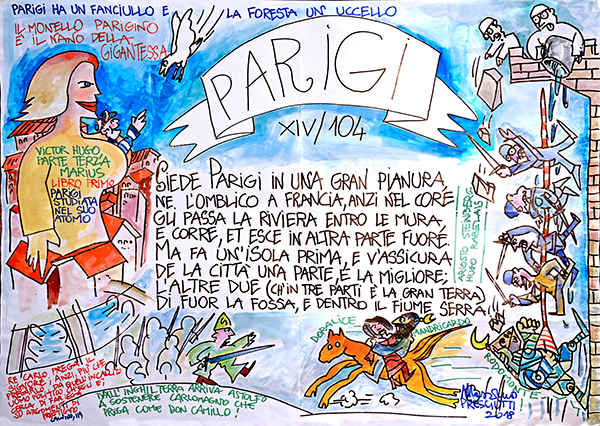 PARIGI HA UN FANCIULLO E
LA FORESTA UN UCCELLO
IL MONELLO PARIGINO
È IL NANO DELLA
GIGANTESSA
PARIGI
XIV/104
VICTOR HUGO
PARTE TERZA
MARIUS
LIBRO PRIMO
PARIGI
STUDIATA
NEL SUO
ATOMO
SIEDE PARIGI IN UNA GRAN PIANURA,
NE L'OMBLICO A FRANCIA, ANZI NEL CORE
GLI PASSA LA RIVIERA ENTRO LE MURA,
E CORRE, ET ESCE IN ALTRA PARTE FUORE.
MA FA UN'ISOLA PRIMA, E V'ASSICURA
DE LA CITTÀ UNA PARTE, E LA MIGLIORE;
L'ALTRE DUE (CH'IN TRE PARTI È LA GRAN TERRA)
DI FUOR LA FOSSA, E DENTRO IL FIUME SERRA.
ARIOSTO STEINBERG
HUGO RABELAIS
RE CARLO PREGÒ IL
SIGNORE, ANZI PIÙ CHE
CALVINO,
DALL'INGHILTERRA ARRIVA ASTOLFO
A SOSTENERE CARLOMAGNO CHE
PREGA COME DON CAMILLO!
DORALICE
MANDRICARDO
RODOMONTE
Massimo
PRESCIUTTI
2018